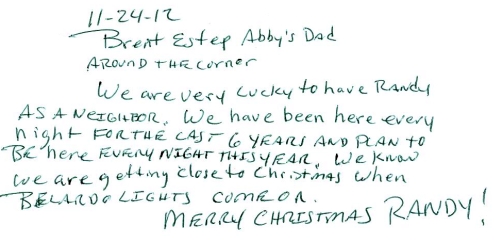 11-24-12
Brent Estep Abby's Dad
AROUND THE CORNER
We are very Lucky to have RANDY
AS A NEIGHBOR. We have been here every
night FOR THE LAST 6 YEARS AND PLAN TO
BE here EVERY NIGHT THIS YEAR. We know
we are getting close to Christmas when
BELARDO LIGHTS COME ON.
MERRY CHRISTMAS RANDY!